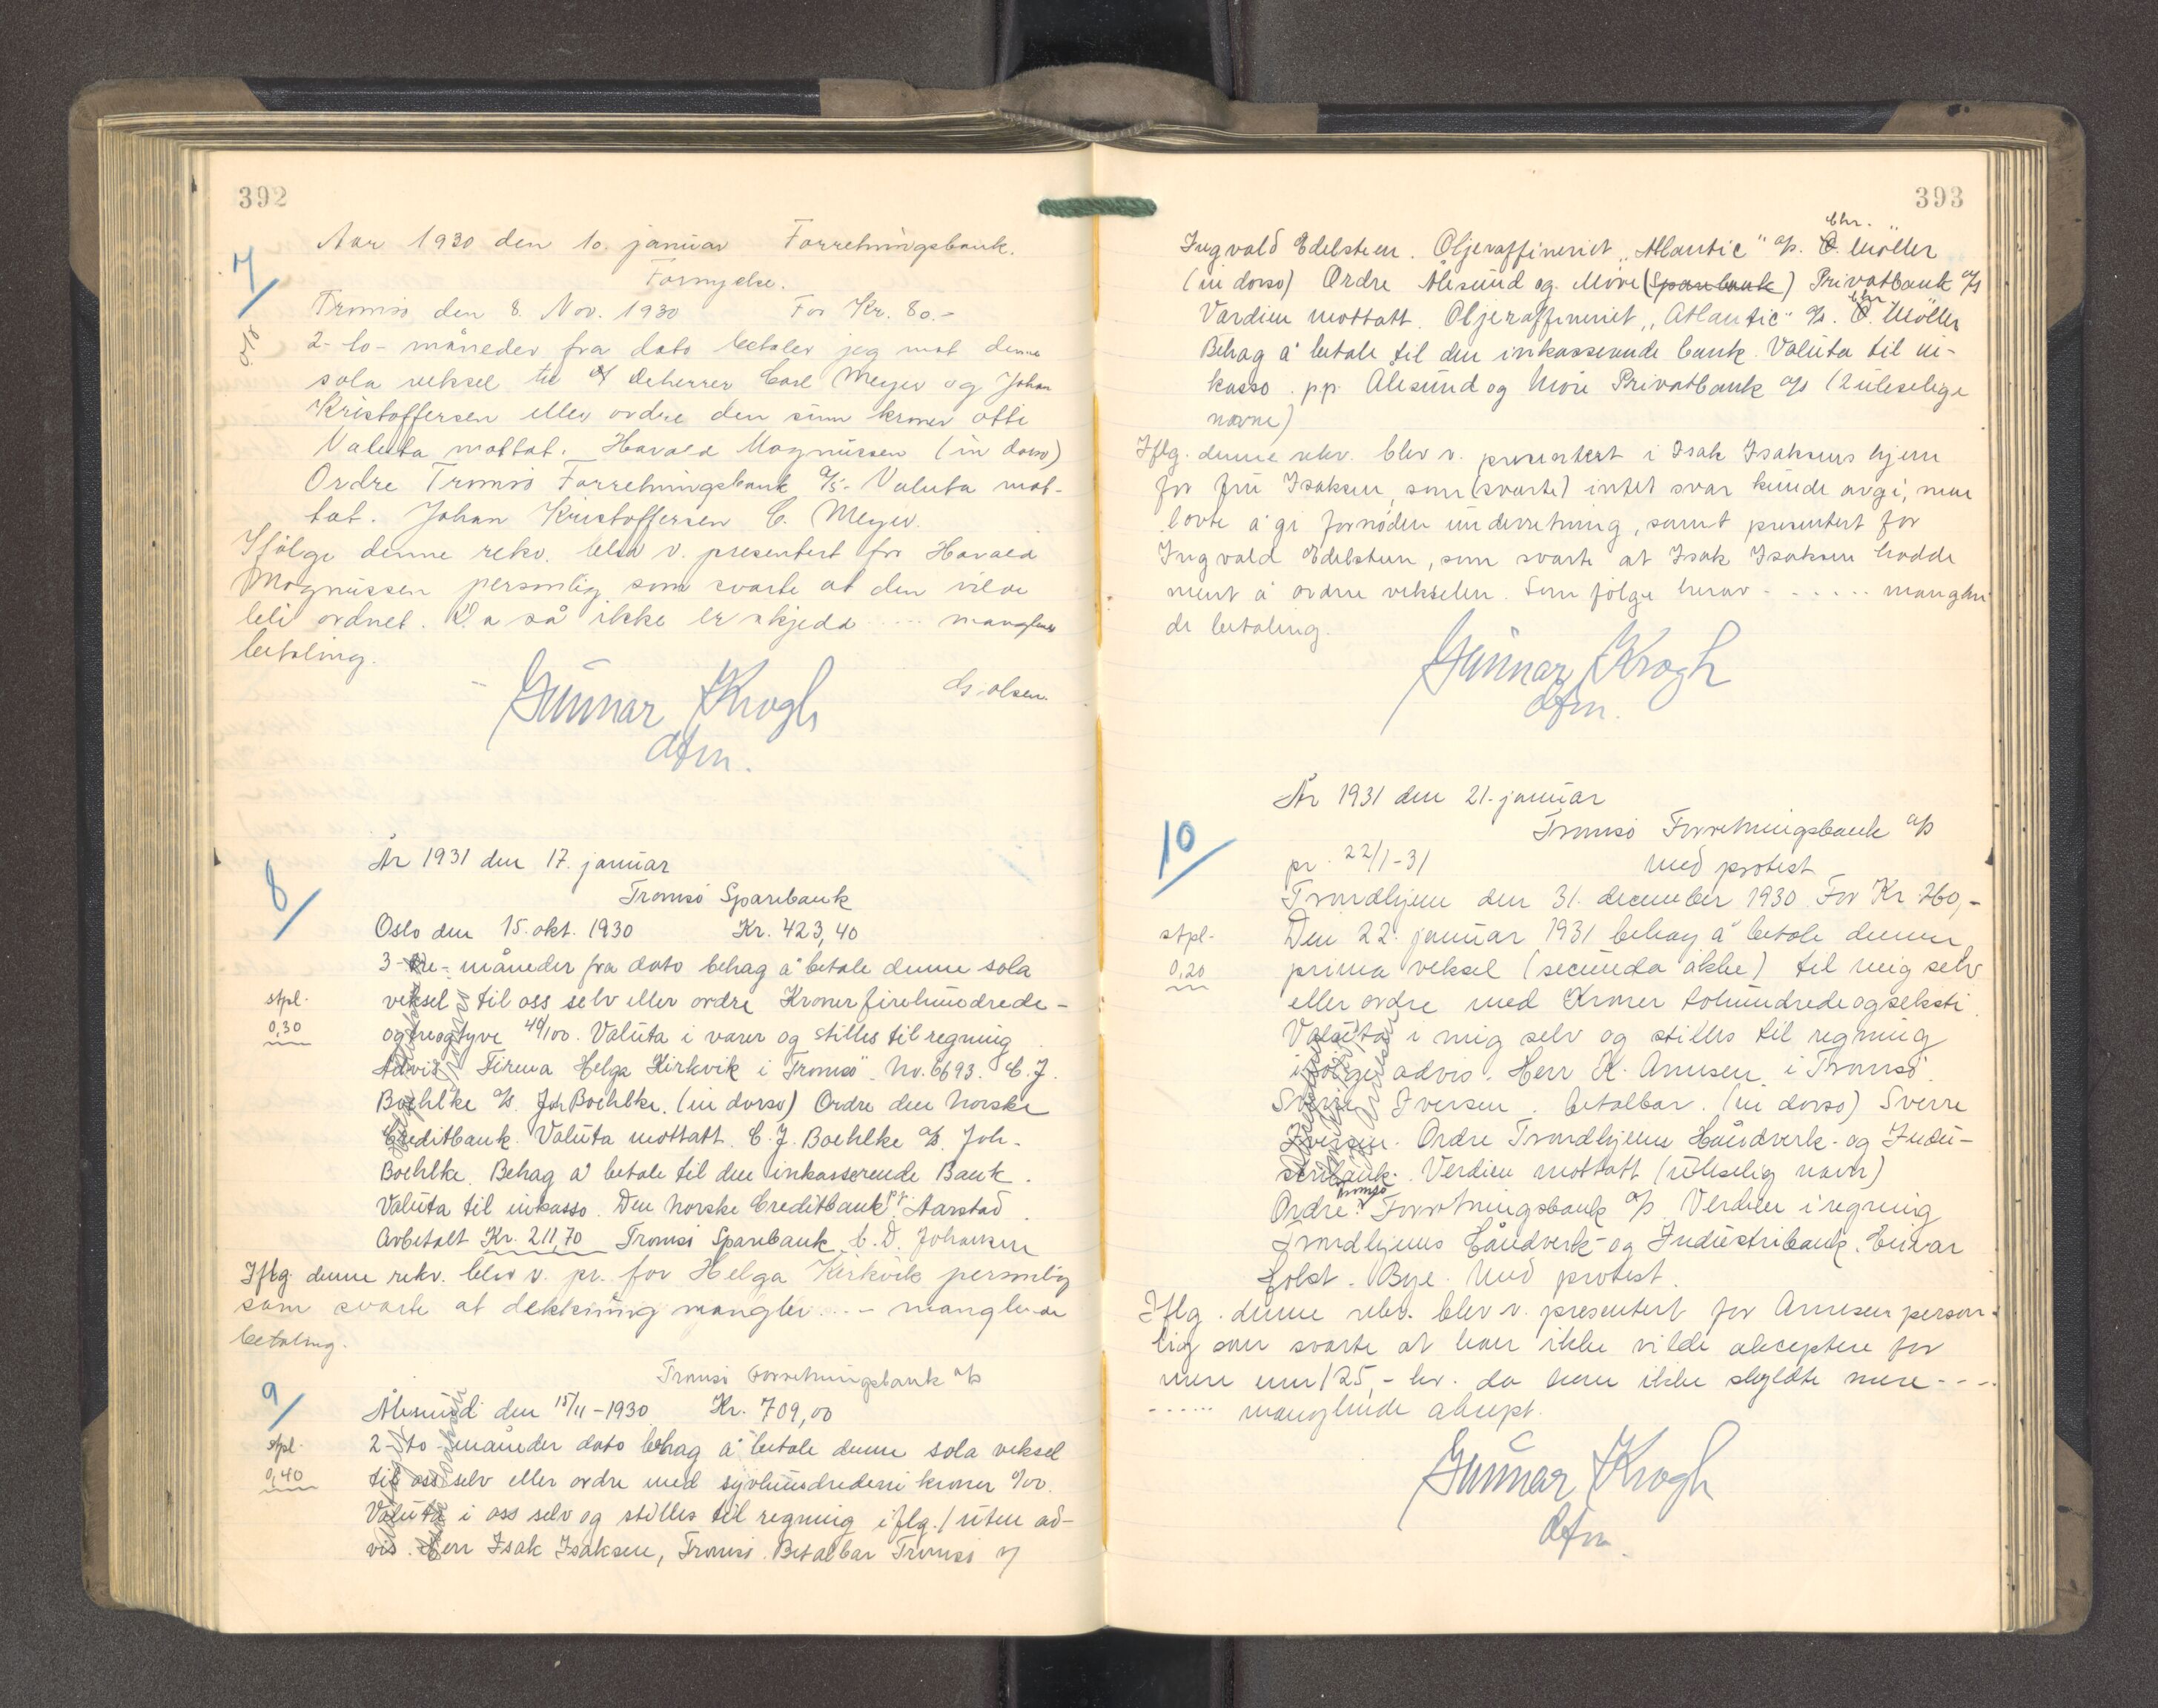 392
Aar 1930 den 10. januar Forretningsbank.
7
Fornyelse.
Tromsö den 8. Nov. 1930 For Kr. 80.-
2- to- måneder fra dato betaler jeg mot denne
sola veksel til Deherrer Carl Meyer og Johan
Kristoffersen eller ordre den sum kroner otti
Valuta mottat. Harald Magnussen (in dorso)
Ordre Tromsö Forretningsbank A/S- Valuta mot-
tat. Johan Kristoffersen C. Meyer.
Ifölge denne rekv. blev v. presentert for Harald
Magnussen personlig som svarte at den vilde
bli ordnet. Da så ikke er skjedd .... manglende
betaling.
Olsen.
Gunnar Krogh
dfm.
År 1931 den 17. januar
8
Tromsö Sparebank
Oslo den 15. okt. 1930 Kr. 423,40
3-tre- måneder fra dato behag å betale denne sola
stpl. veksel til oss selv eller ordre Kroner firehundrede-
0,30 ogtreogtyve 40/100. Valuta i varer og stilles til regning
Advis Firma Helga Kirkvik i Tromsö. No. 6693. C. J.
Boehlke A/S. Joh Boehlke. (in dorso) Ordre den Norske
Creditbank. Valuta mottatt. C. J. Boehlke A/S. Joh.
Boehlke. Behag å betale til den inkasserende Bank.
Valuta til inkasso. Den Norske Creditbank pr. Aarstad.
Avbetalt Kr. 211,70 Tromsö Sparebank C. D. Johansen
Iflg. denne rekv. blev v. pr. for Helga Kirkvik personlig
som svarte at dekkning mangler ... - manglende
betaling.
Tromsö Forretningsbank A/S
9
Ålesund den 15/11-1930 Kr. 709,00
stpl. 2-to-måneder dato behag å betale denne sola veksel
0,40 til oss selv eller ordre med syvhundredeni kroner 0/00.
Valuta i oss selv og stilles til regning iflg. / uten ad-
vis. Herr Isak Isaksen, Tromsö. Betalbar Tromsö v/
393
Chr.
Ingvald Edelsteen. Oljeraffineriet „Atlantic" A/S. O. Möller
(in dorso) Ordre Ålesund og Möre (Sparebank) Privatbank A/S
Chr.
Værdien mottatt. Oljeraffineriet „Atlantic" A/S. O. Möller
Behag å betale til den inkasserende bank. Valuta til in-
kasso. pp. Alesund og Möre Privatbank A/S (2 uleselige
navne)
Iflg. denne rekv. blev v. presentert i Isak Isaksens hjem
for fru Isaksen, som (svarte) intet svar kunde avgi, men
lovte å gi fornöden underretning, samt presentert for
Ingvald Edelsteen, som svarte at Isak Isaksen hadde
ment å ordne vekselen. Som fölge herav - ..... manglen
de betaling.
Gunnar Krogh
dfm.
År 1931 den 21. januar
10
Tromsö Forretningsbank A/S
pr. 22/1-31 Med protest
Trondhjem den 31. december 1930. For Kr. 260,-
stpl- Den 22. januar 1931 behag å betale denne
0,20 prima veksel (secunda ikke) til mig selv
eller ordre med Kroner tohundredeogseksti.
Valuta i mig selv og stilles til regning
advis. Herr K. Arnesen i Tromsö.
Sverre Iversen. betalbar. (in dorso) Sverre
Iversen. Ordre Trondhjems Håndverk- og Indu-
stribank. Verdien mottatt (uleselig navn)
Tromsö
Ordre Forretningsbank A/S Verdien i regning
Trondhjems Håndverk- og Industribank. Einar
Holst. Bye. Med protest.
Iflg. denne rekv. blev v. presentert for Arnesen person-
lig som svarte at han ikke vilde akseptere for
mere enn 125,- kr. da han ikke skyldte mere - - -
...... manglende aksept.
Gunnar Krogh
dfm.